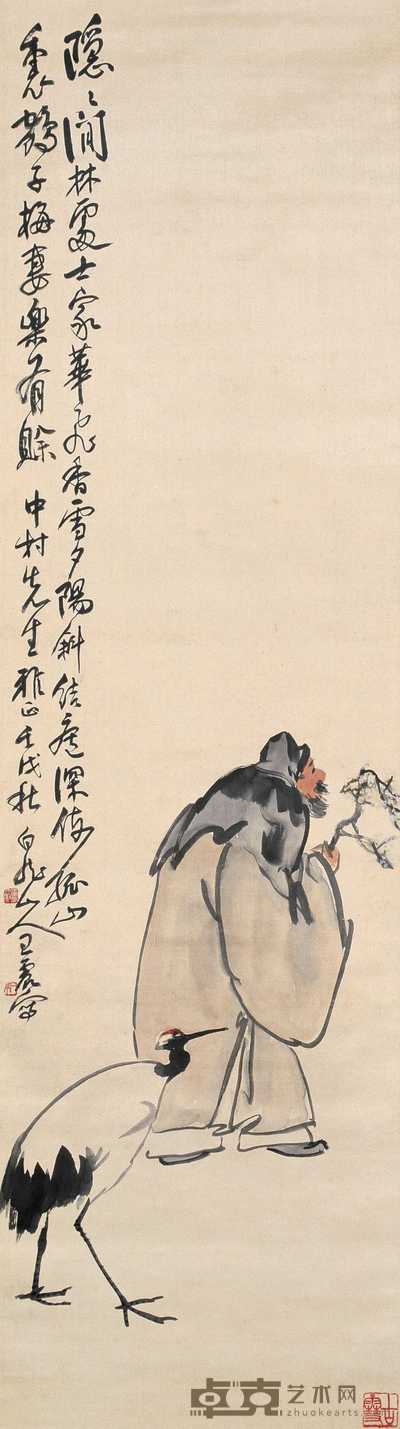 隐〻閒林處士家華飛香雪夕陽斜結廬深傍孤山
裏鶴子梅妻樂有賖 中村先生雅正壬戌秋 白龍山人王震寫
卓克艺术网
www.zhuokearts.com